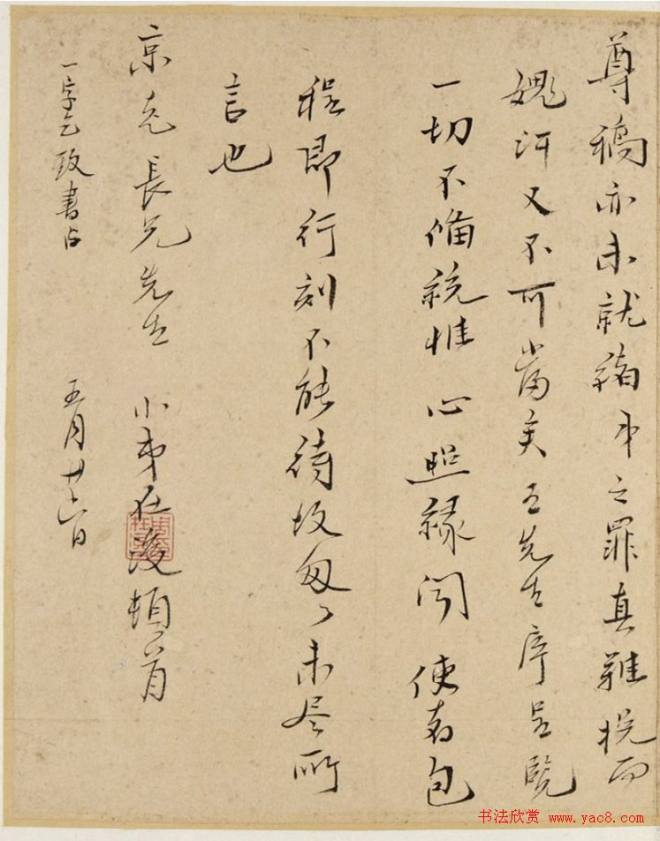 尊稿亦未就緒弟之罪真難挽而
媿汗又不可當矣五先生序呈覽
一切不備統惟 心照緣聞 使者包
程即行刻不能待故匆匆未尽所
言也
京老長兄先生 小弟在浚頓首
一字乞致書 五月廿六日
书法欣赏 www.yac8.com